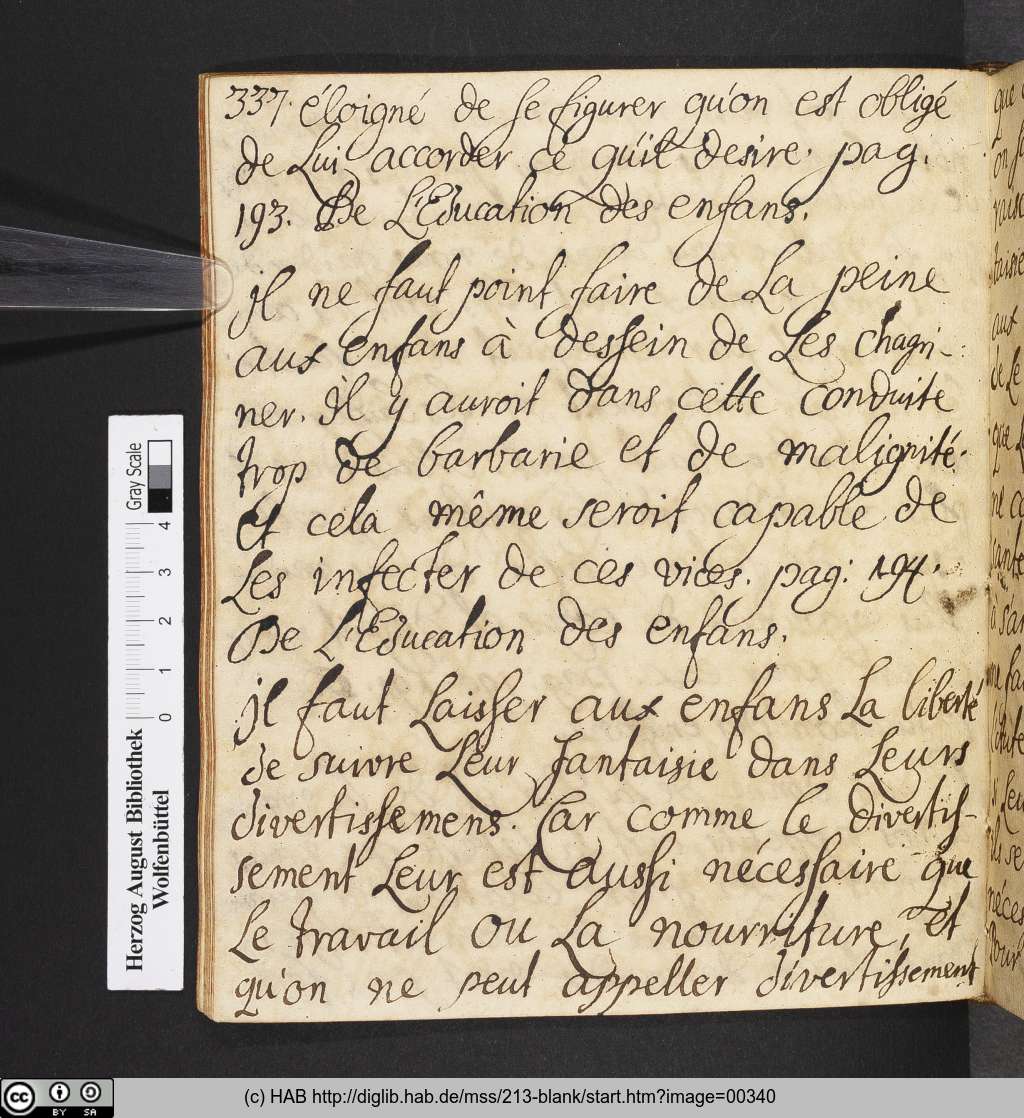 337. éloigné de se figurer qu'on est obligé
de Lui accorder ce qu'il desire. pag.
193. De L'Education des enfans.
jl ne faut point faire de La peine
aux enfans à dessein de Les chagri-
ner. jl y auroit dans cette conduite
trop de barbarie et de malignité.
Et cela même seroit capable de
Les infecter de ces vices. pag: 194.
De L'Education des enfans.
jl faut Laisser aux enfans La liberté
de suivre Leur fantaisie dans Leurs
divertissemens. Car comme le divertis-
sement Leur est aussi nécessaire que
Le travail ou La nourriture, et
qu'on ne peut appeller divertissement
Gray Scale
4
3
2
1
0
Herzog August Bibliothek
Wolfenbüttel
cc BY SA
(c) HAB http://diglib.hab.de/mss/213-blank/start.htm?image=00340